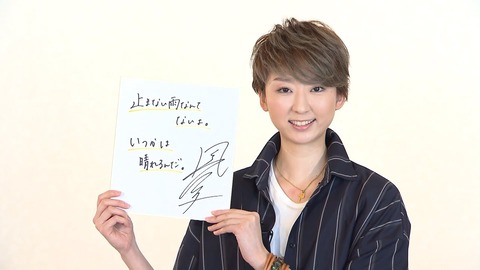 止まない雨なんて
ないよ。
いつかは
晴れるんだ。